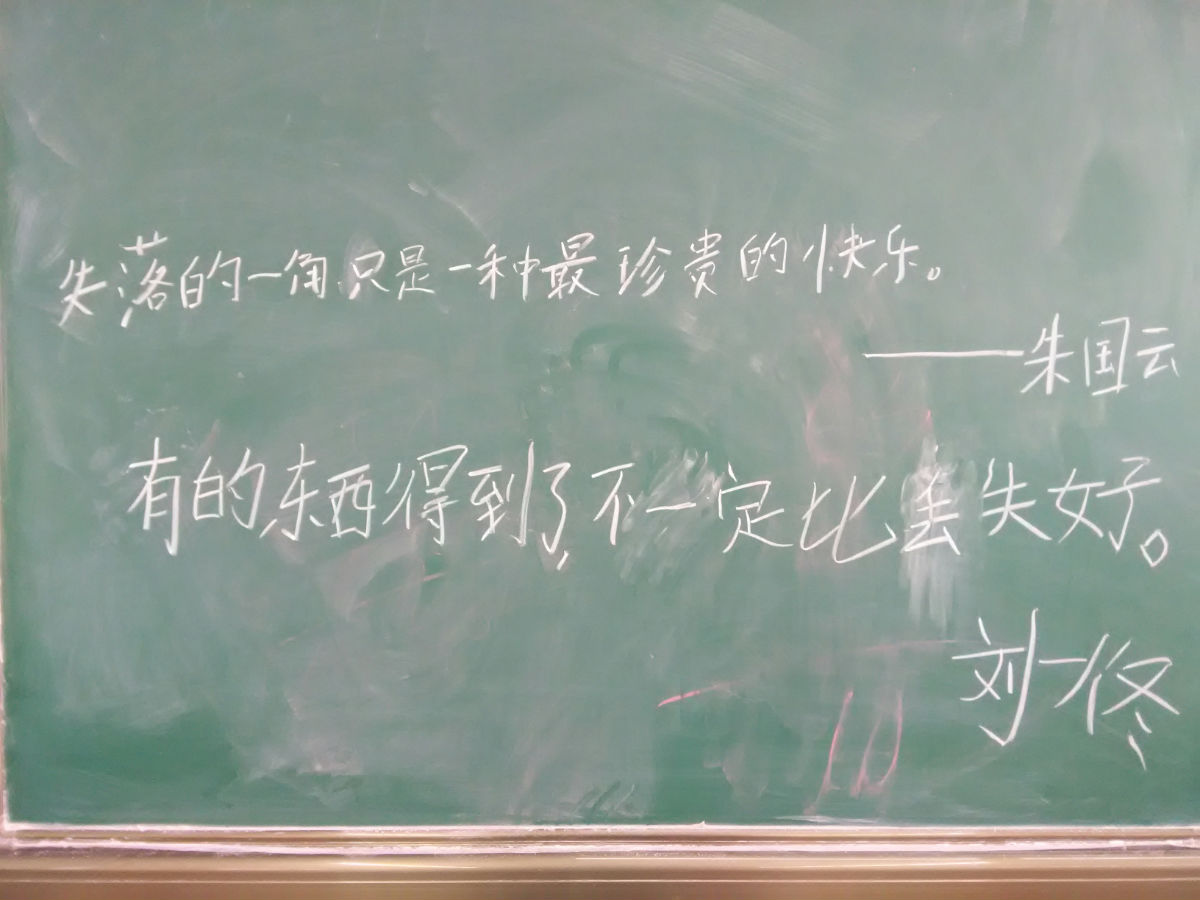 失落的一角只是一种最珍贵的快乐。
——朱国云
有的东西得到了不一定比丢失好。
刘一佟